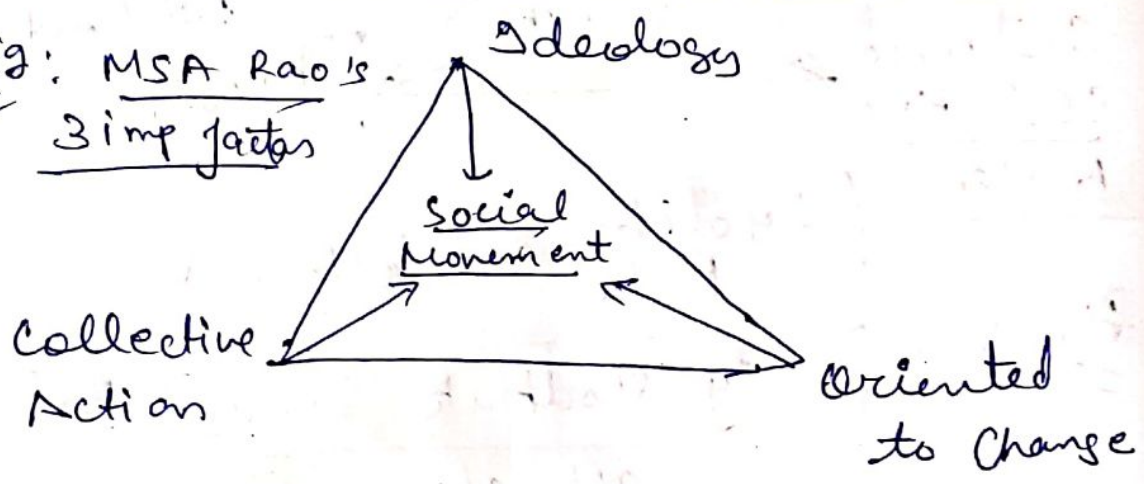 g: MSA Rao's.
3 imp factos
Ideology
Social
Movement
Collective
Action
Oriented
to Change